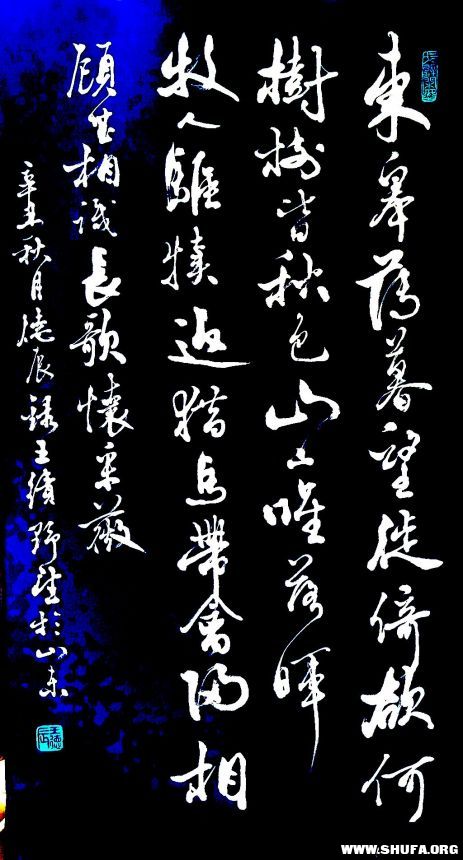 東皋薄暮望徙倚欲何
樹樹皆秋色山山唯落暉
牧人驅犢返獵馬帶禽歸相
顧無相識長歌懷采薇
辛丑秋月德辰錄王績野望於山東
WWW.SHUFA.ORG